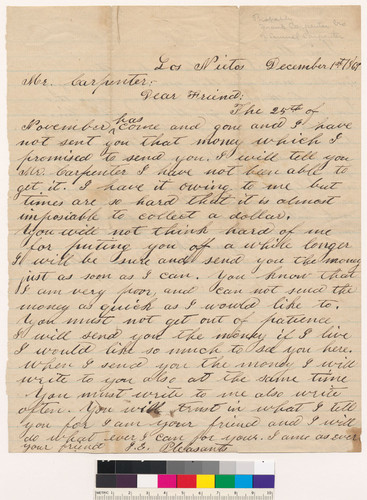 Los Nietos December 1st/
Mr. Carpenter;
Dear Friend;
The 25th of
November has come and gone and I have
not sent you that money which I
promised to send you. I will tell you
Mr. Carpenter I have not ban able to
get it. I have it owing to me but
times are so hard that it is almost
imposiable to collect a dollar.
You will not think hard of me
for puting you off a while longer
I will be sure and send you the money
just as soon as I can. You know that
I am very poor and can not send the
money as quick as I would like to.
You must not get out of patience
I will send you the money if I live
I would like so much to see you here.
When I send you the money I will
write to you also at the same time
You must write to me also write
often. You will trust in what I tell
you for I am your friend and I will
do what ever I can for your. I ame as ever
your friend J.E. Pleasants